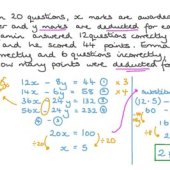 n 20 questions, x marks are awarded
er and y marks are deducted for ea
amin answered 12 questions correctly
and he scored 44 points. Emma
correctly and 6 questions incorrectly,
ow many points were deducted for
12x - 8y = 44 ① × 3
14x - 6y = 58 ② × 4
36x 24y 132 ③
56x 24y 232 ④
20x = 100
÷20 ÷20
x = 5
substitu
(12 · 5) -
60 - 8
2